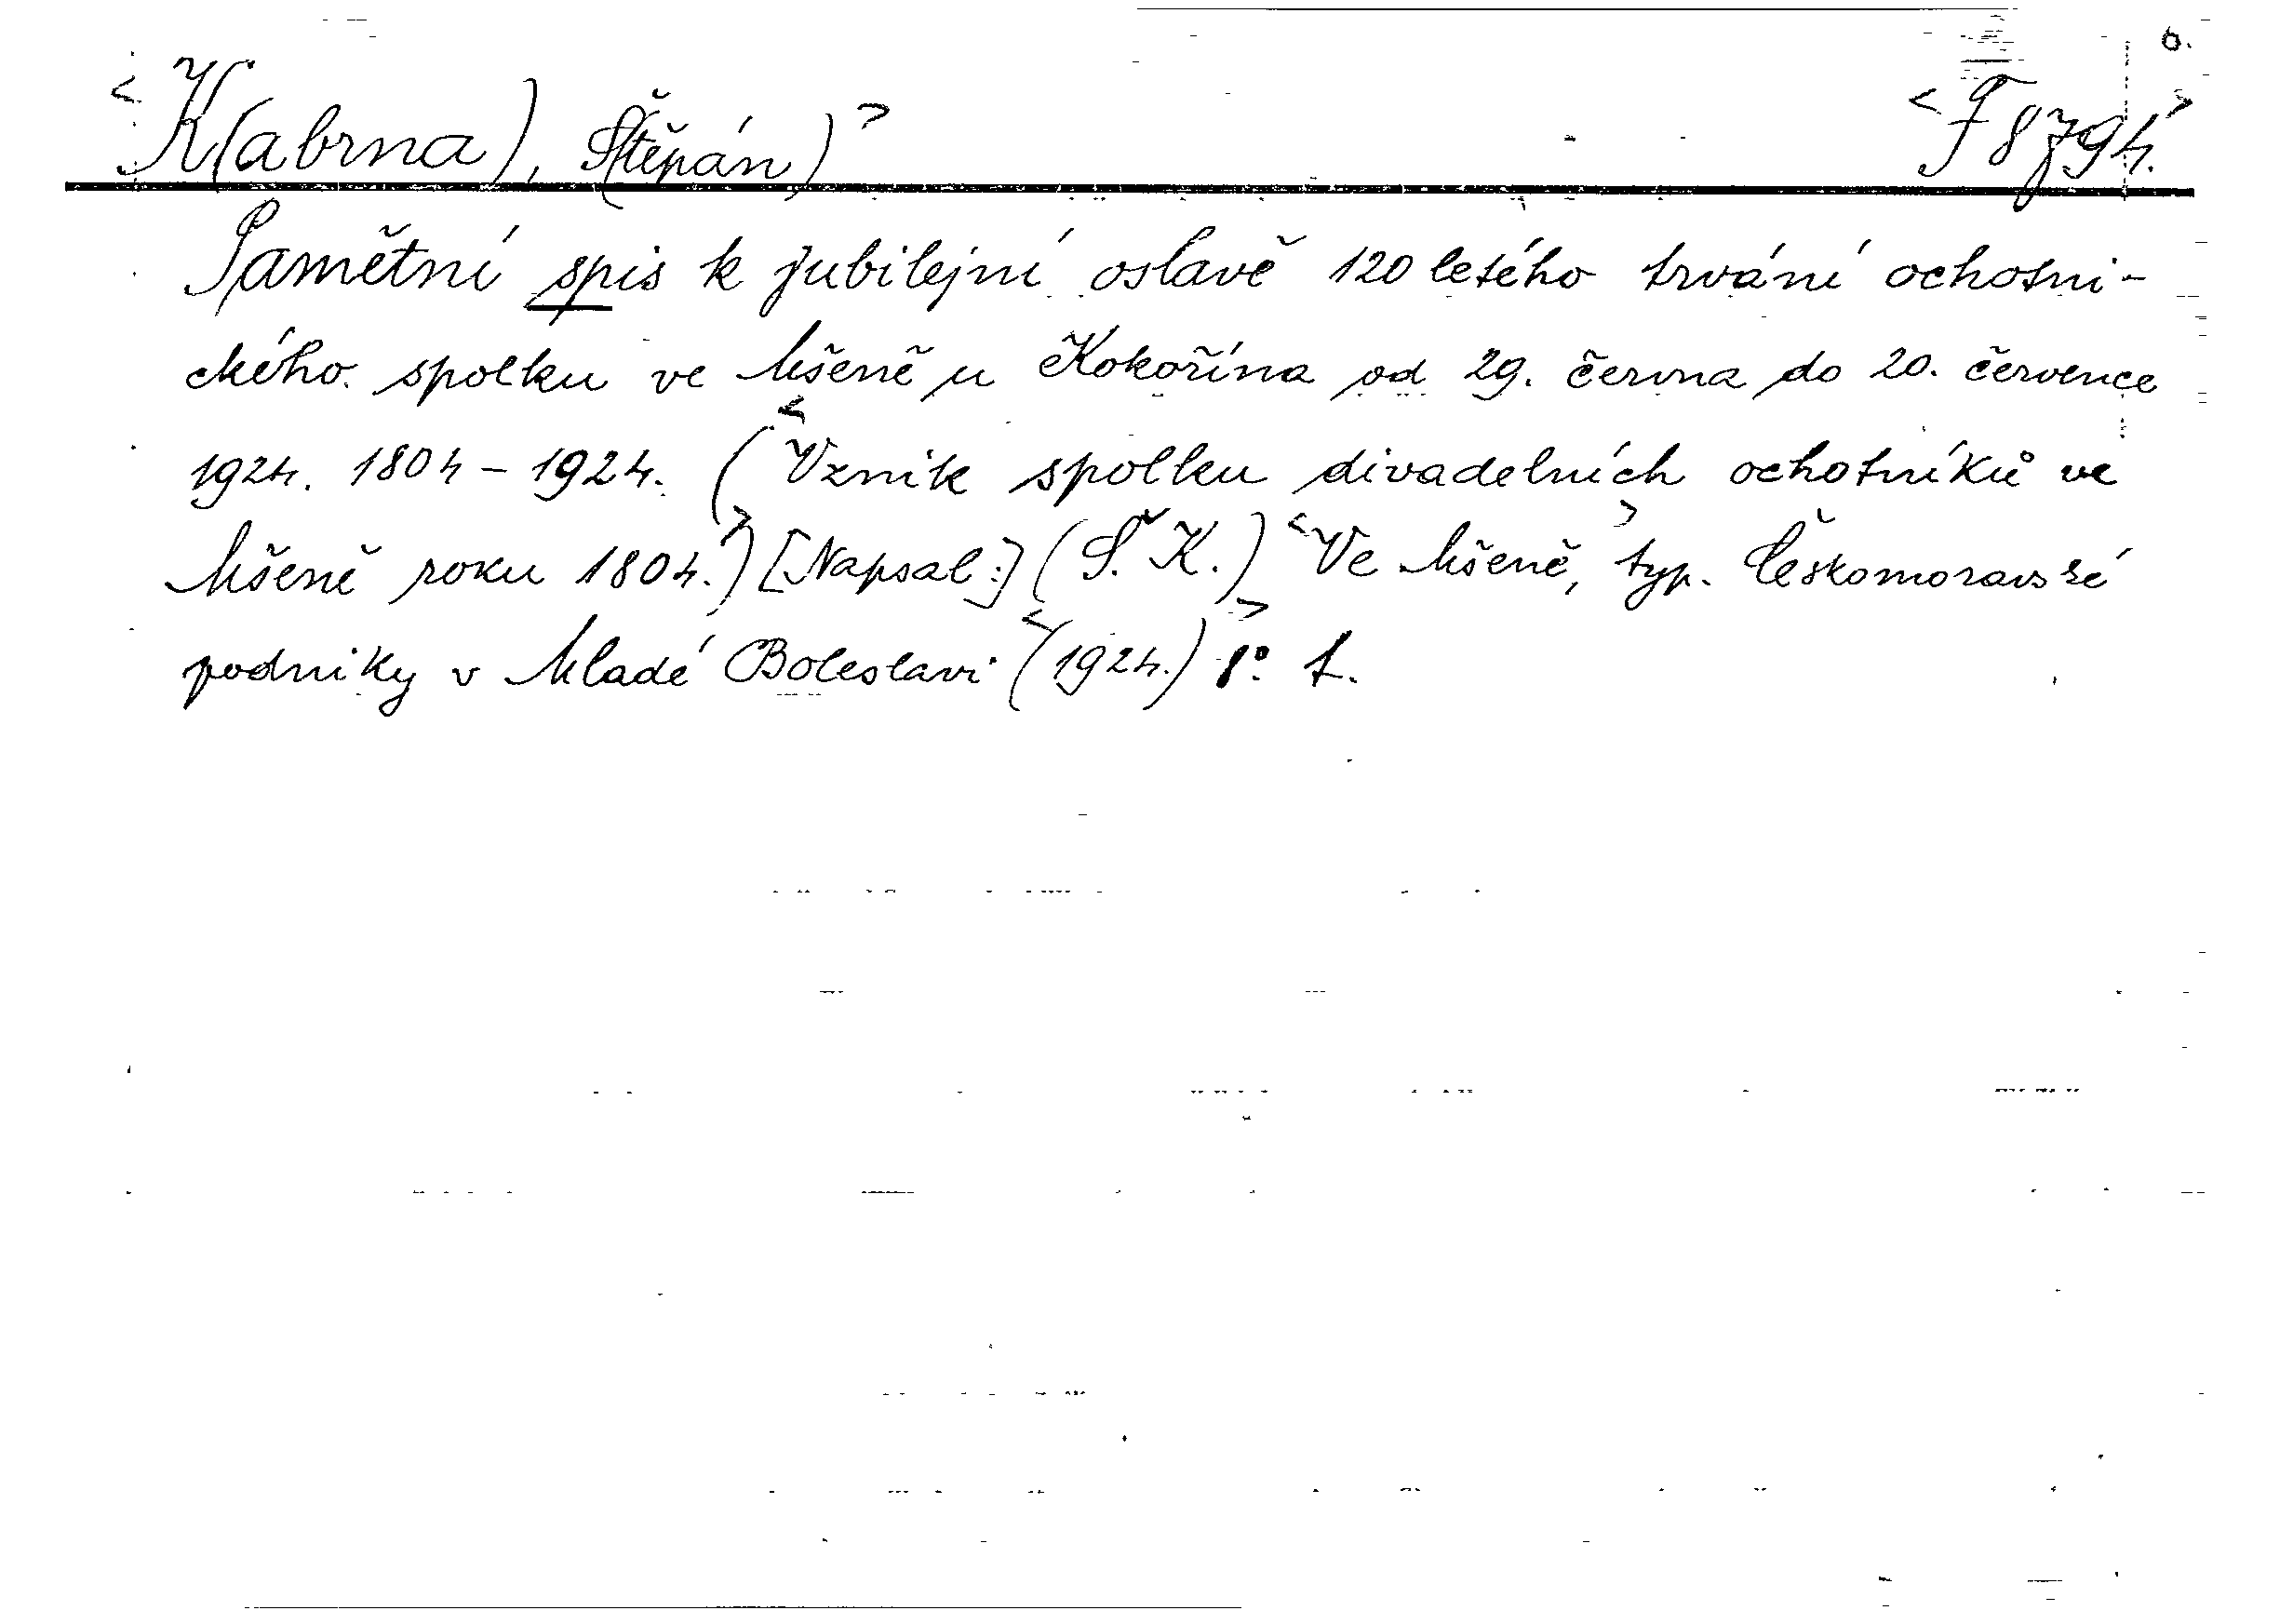 6.
<K(abrna), Š(těpán)> <F 8794.>
Pamětní spis k jubilejní oslavě 120 letého trvání ochotni-
ckého spolku ve Mšeně u Kokořína od 29. června do 20. července
1924. 1804 – 1924. (<Vznik spolku divadelních ochotníků ve
Mšeně roku 1804.>) [Napsal:] (Š. K.) <Ve Mšeně,> typ. Českomoravské
podniky v Mladé Boleslavi <(1924.)> 8°. f.